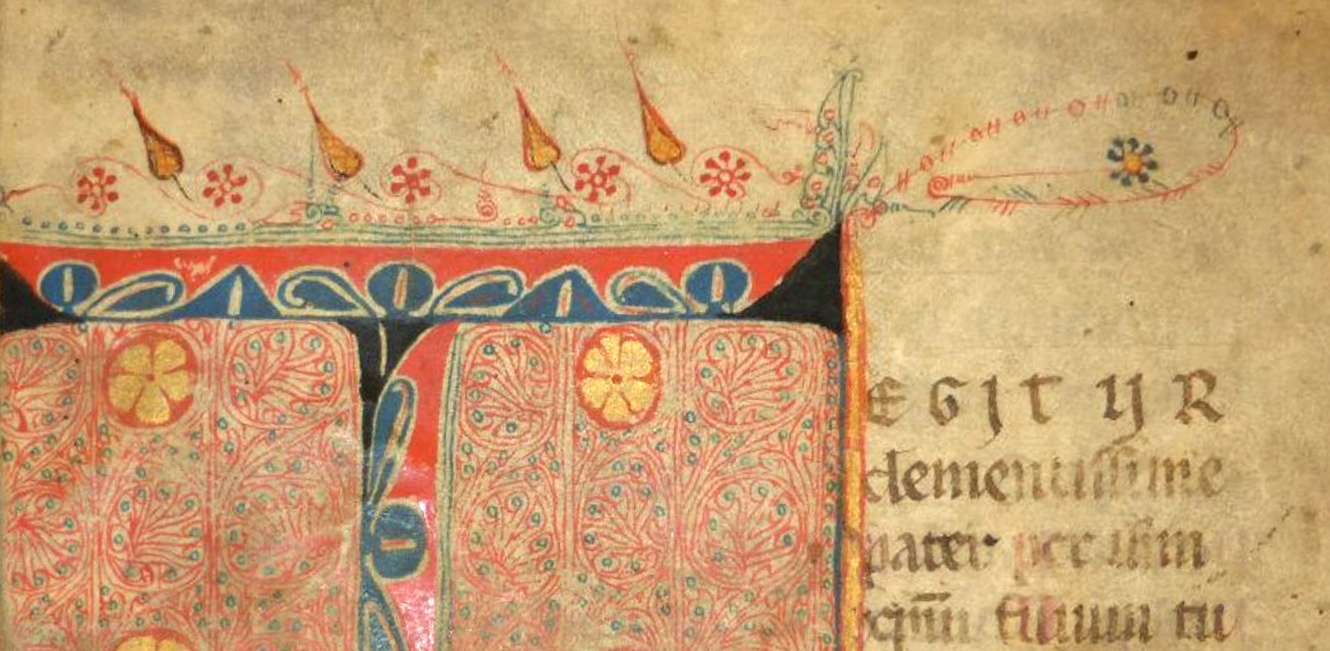 EGIT UR
clementissime
pater per ihm
xp̅m filium tu